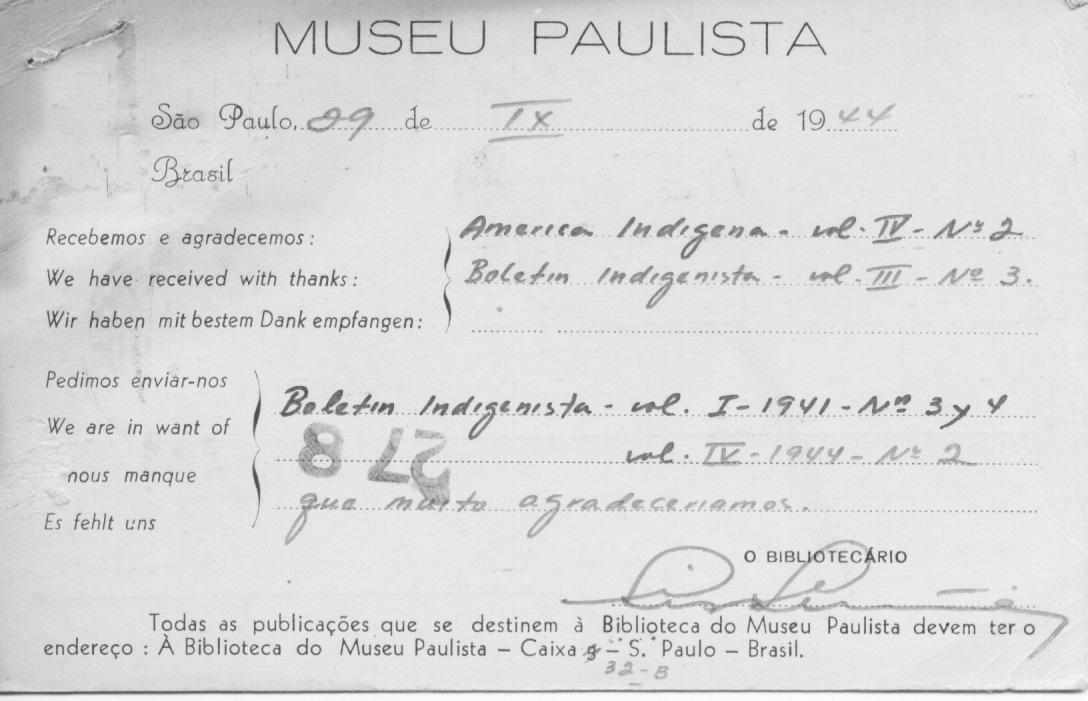 MUSEU PAULISTA
São Paulo, 29 de IX de 1944
Brasil
Recebemos e agradecemos:
We have received with thanks:
Wir haben mit bestem Dank empfangen:
America Indigena - vol. IV - Nº 2
Boletin Indigenista - vol. III - Nº 3.
Pedimos enviar-nos
We are in want of
nous manque
Es fehlt uns
Boletin Indigenista - vol. I - 1941 - Nºs 3 y 4
vol. IV - 1944 - Nº 2
que muito agradeceriamos.
27 8
O BIBLIOTECÁRIO
Todas as publicações que se destinem à Biblioteca do Museu Paulista devem ter o
endereço : À Biblioteca do Museu Paulista – Caixa – S. Paulo – Brasil.
32-B